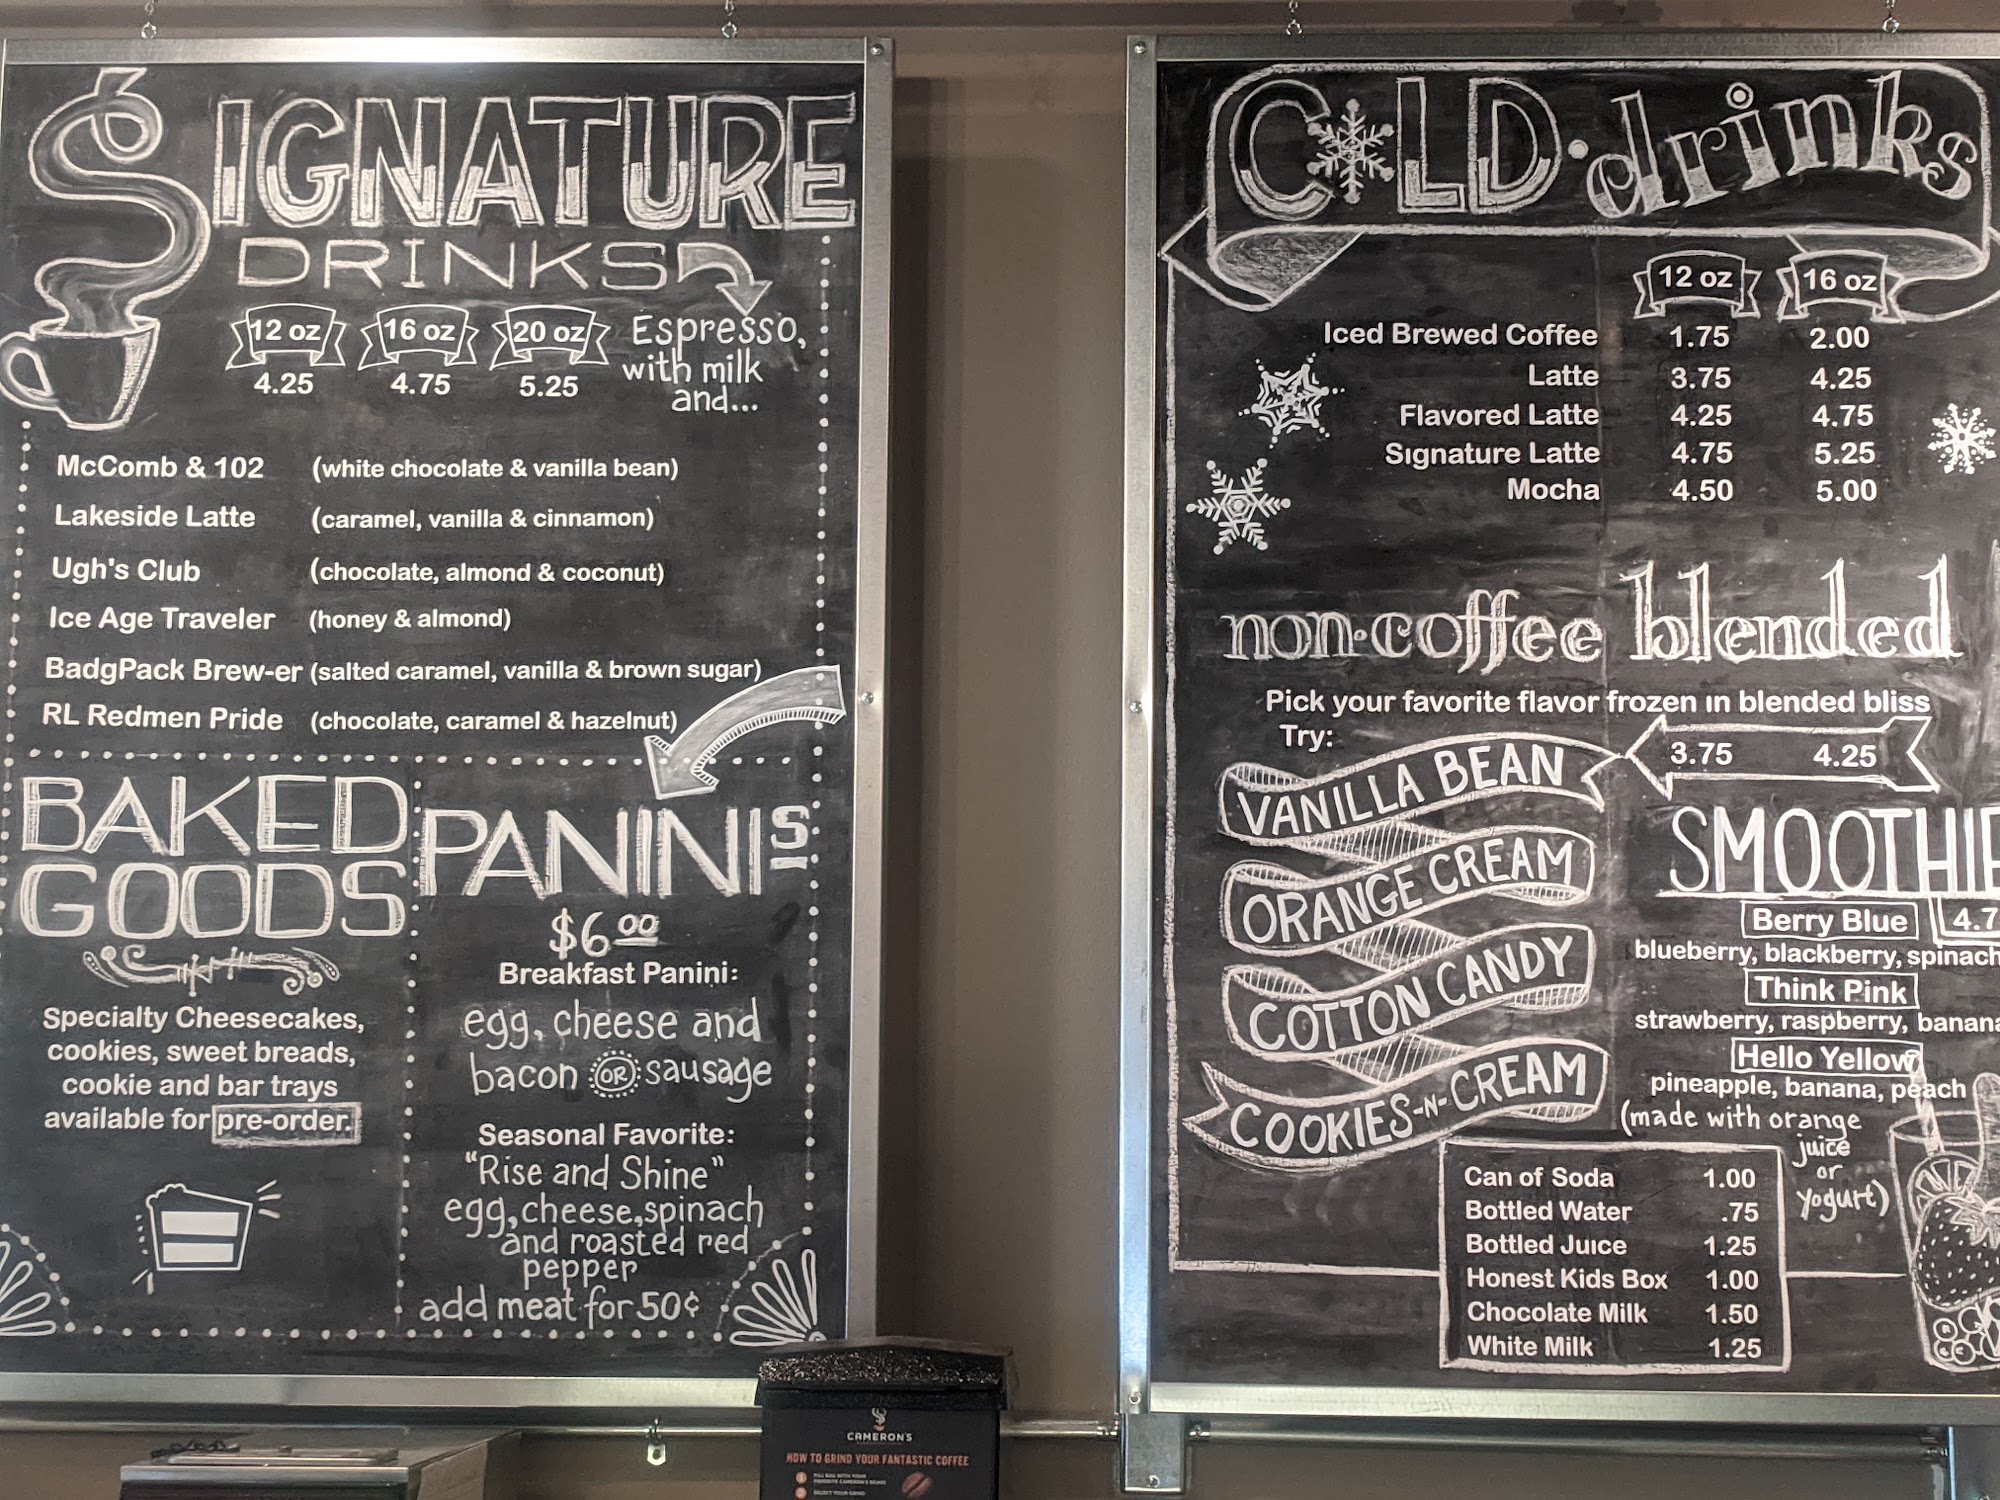 SIGNATURE
DRINKS
12 oz 16 oz 20 oz
4.25 4.75 5.25
Espresso,
with milk
and...
McComb & 102 (white chocolate & vanilla bean)
Lakeside Latte (caramel, vanilla & cinnamon)
Ugh's Club (chocolate, almond & coconut)
Ice Age Traveler (honey & almond)
BadgPack Brew-er (salted caramel, vanilla & brown sugar)
RL Redmen Pride (chocolate, caramel & hazelnut)
BAKED
GOODS
Specialty Cheesecakes,
cookies, sweet breads,
cookie and bar trays
available for pre-order.
PANINIS
$6.00
Breakfast Panini:
egg, cheese and
bacon OR sausage
Seasonal Favorite:
"Rise and Shine"
egg, cheese, spinach
and roasted red
pepper
add meat for 50¢
COLD • drinks
12 oz 16 oz
Iced Brewed Coffee 1.75 2.00
Latte 3.75 4.25
Flavored Latte 4.25 4.75
Signature Latte 4.75 5.25
Mocha 4.50 5.00
non-coffee blended
Pick your favorite flavor frozen in blended bliss
Try:
3.75 4.25
VANILLA BEAN
ORANGE CREAM
COTTON CANDY
COOKIES-N-CREAM
SMOOTHIE
Berry Blue 4.7
blueberry, blackberry, spinach
Think Pink
strawberry, raspberry, banana
Hello Yellow
pineapple, banana, peach
(made with orange
juice
or
yogurt)
Can of Soda 1.00
Bottled Water .75
Bottled Juice 1.25
Honest Kids Box 1.00
Chocolate Milk 1.50
White Milk 1.25
CAMERON'S
HOW TO GRIND YOUR FANTASTIC COFFEE
1 FILL BAG WITH YOUR
FAVORITE CAMERON'S BEANS
2 SELECT YOUR GRIND